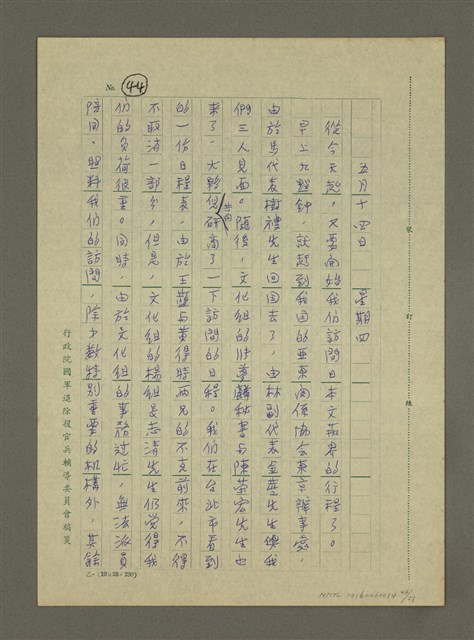 No. 44
五月十四日　星期四
從今天起，又要開始我們訪問日本文藝界的行程了。
早上九點鐘，就趕到我國的亞東關係協會東京辦事處，
由於馬代表樹禮先生回國去了，由林副代表金莖先生與我
們三人見面。隨後，文化組的張秘書與陳先生也
來了，大夥兒研商了一下訪問的日程。我們在台北市看到
的一份日程表，由於王藍與黃得時兩兄的不克前來，不得
不取消一部分，但是，文化組的楊組長志清先生仍覺得我
們的負荷很重。同時，由於文化組的事務過忙，無法派員
陪同、照料我們的訪問，除少數特別重要的機構外，其餘
裝　訂　線
行政院國軍退除役官兵輔導委員會稿箋